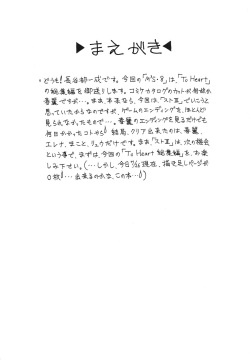 ▶まえがき◀
。どうも!長谷部一成です。今回の「M'S・8」は、「To Heart」
の総集編を御送りします。コミケカタログのカットが何故か
春麗ですが…。まあ、本来なら、今回は、「ストⅢ」でいこうと
思っていたからなのですが、ゲームのエンディングを、ほとんど
見られなかったもので…。春麗のエンディングを見るだけでも
何日かかったコトか!結局、クリア出来たのは、春麗、
エレナ、まこと、リュウだけです。まあ、「ストⅢ」は、次の機会
という事で、まずは、今回の「To Heart 総集編」を、お楽
しみ下さい。(…しかし、今日7/26現在、描き足しページが
0枚!…出来るのかな、この本…!)